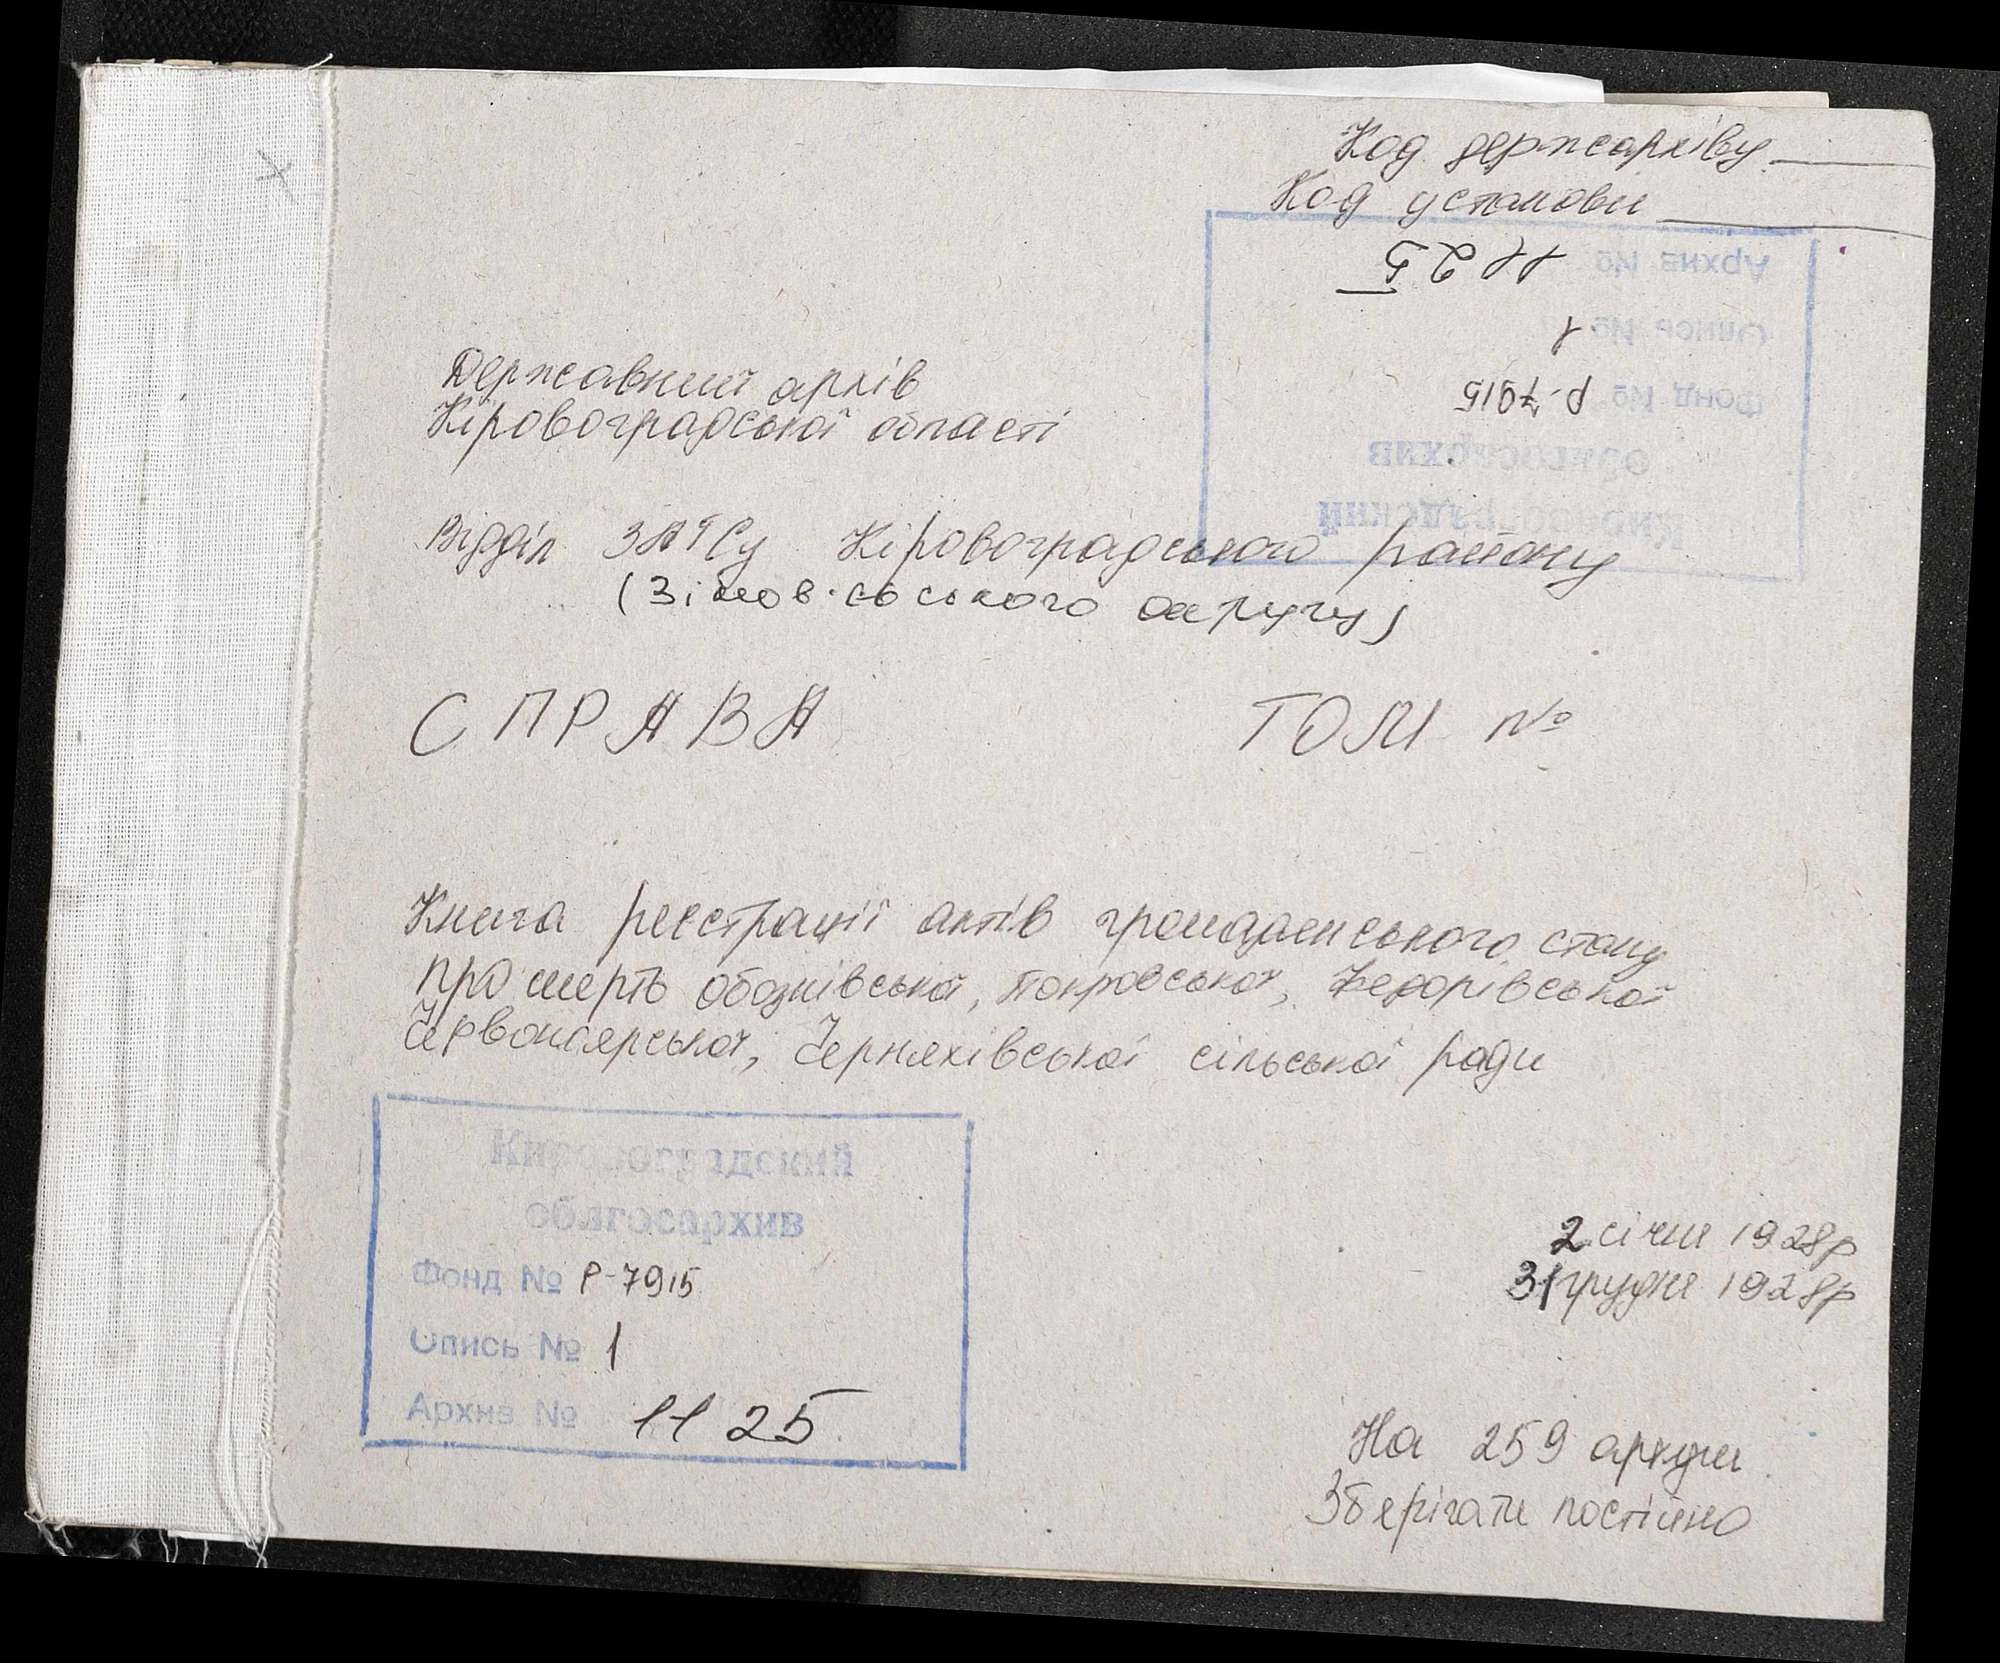 Код держархіву
Код установи
Архив № 1125
Опись № 1
Фонд № Р-7915
облгосархив
Кировоградский
Державний архів
Кіровоградської області
Відділ ЗАГСу Кіровоградського району
округу)
СПРАВА ТОМ №
Книга реєстрації актів громадянського стану
про смерть Обознівської, Покровської, Федорівської
Червоноярської, Черняхівської сільської ради
Кировоградский
облгосархив
Фонд № Р-7915
Опись № 1
Архив № 1125
2 січня 1928р
31 грудня 1928р
На 259 аркуш
Зберігати постійно